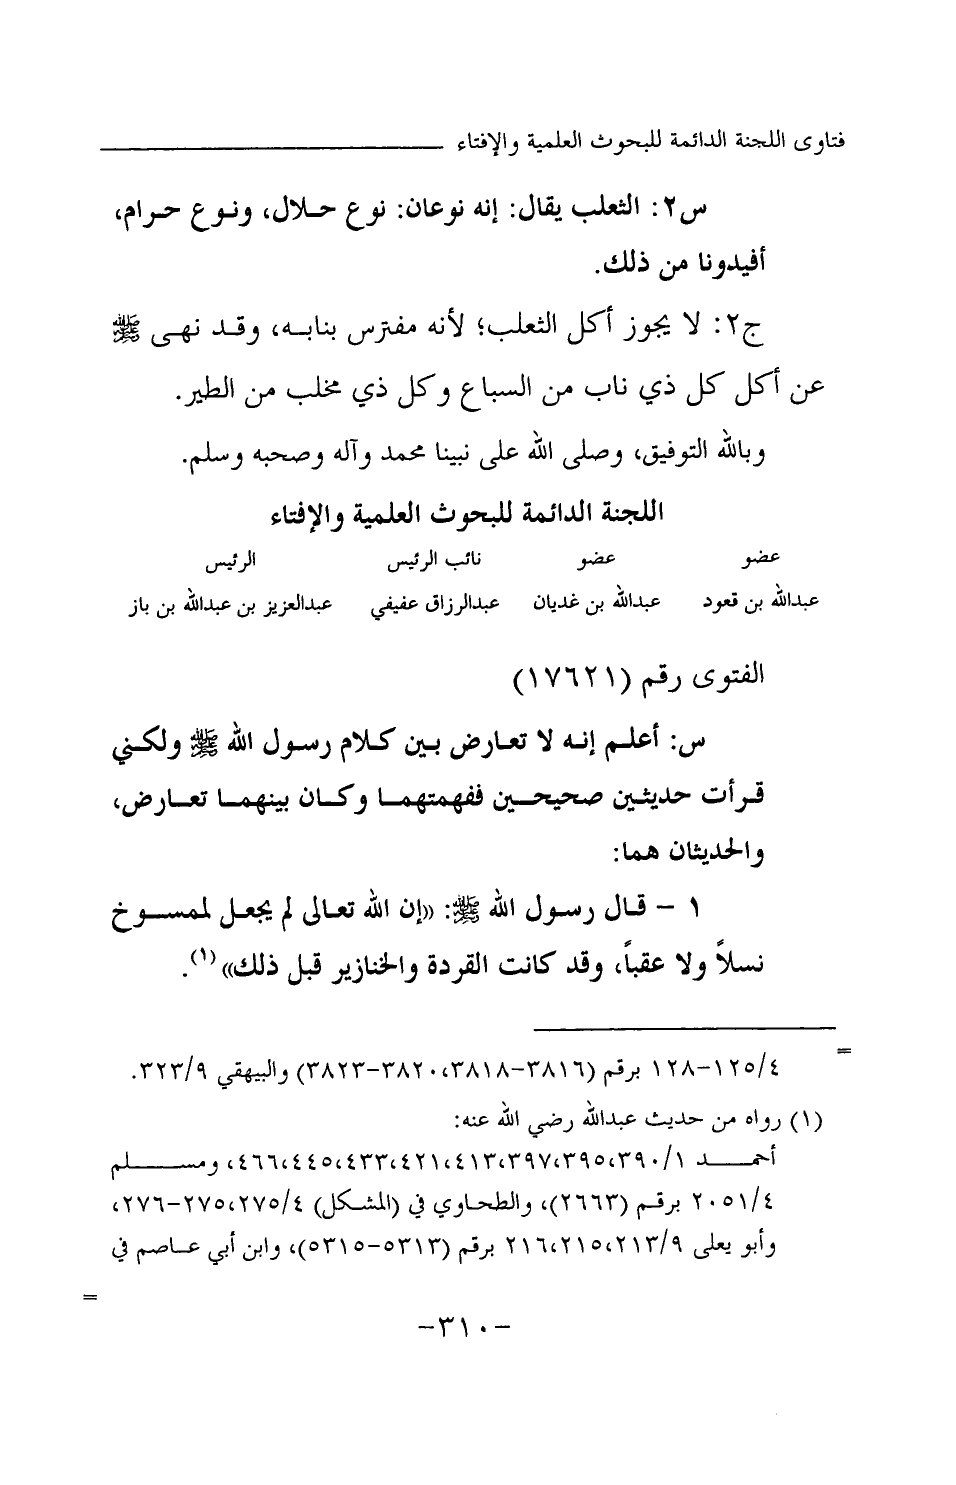 فتاوى اللجنة الدائمة للبحوث العلمية والإفتاء
س٢: الثعلب يقال: إنه نوعان: نوع حلال، ونوع حرام،
أفيدونا من ذلك.
ج٢: لا يجوز أكل الثعلب؛ لأنه مفترس بنابه، وقد نهى ﷺ
عن أكل كل ذي ناب من السباع وكل ذي مخلب من الطير.
وبالله التوفيق، وصلى الله على نبينا محمد وآله وصحبه وسلم.
اللجنة الدائمة للبحوث العلمية والإفتاء
عضو عضو نائب الرئيس الرئيس
عبدالله بن قعود عبدالله بن غديان عبدالرزاق عفيفي عبدالعزيز بن عبدالله بن باز
الفتوى رقم (١٧٦٢١)
س: أعلم إنه لا تعارض بين كلام رسول الله ﷺ ولكني
قرأت حديثين صحيحين ففهمتهما وكان بينهما تعارض،
والحديثان هما:
١ - قال رسول الله ﷺ: «إن الله تعالى لم يجعل لممسوخ
نسلاً ولا عقباً، وقد كانت القردة والخنازير قبل ذلك»(١).
=
٤/١٢٥-١٢٨ برقم (٣٨١٦-٣٨١٨،٣٨٢٠-٣٨٢٣) والبيهقي ٩/٣٢٣.
(١) رواه من حديث عبدالله رضي الله عنه:
أحمد ١/٣٩٠،٣٩٥،٣٩٧،٤١٣،٤٢١،٤٣٣،٤٤٥،٤٦٦، ومسلم
٤/٢٠٥١ برقم (٢٦٦٣)، والطحاوي في (المشكل) ٤/٢٧٥،٢٧٥-٢٧٦،
وأبو يعلى ٩/٢١٣،٢١٥،٢١٦ برقم (٥٣١٣-٥٣١٥)، وابن أبي عاصم في
=
-٣١٠-